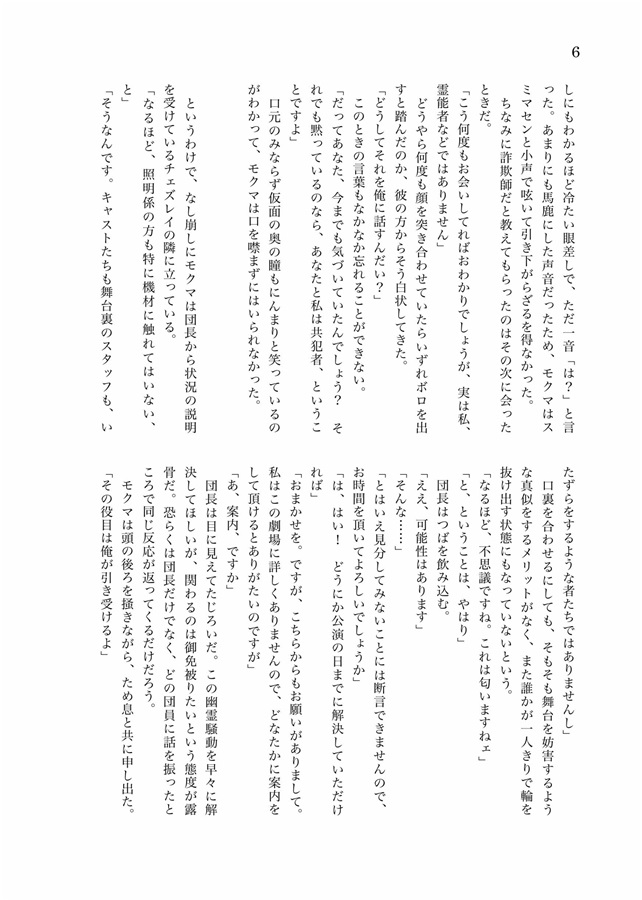 6
しにもわかるほど冷たい眼差しで、ただ一音「は？」と言
った。あまりにも馬鹿にした声音だったため、モクマはス
ミマセンと小声で呟いて引き下がらざるを得なかった。
ちなみに詐欺師だと教えてもらったのはその次に会った
ときだ。
「こう何度もお会いしてればおわかりでしょうが、実は私、
霊能者などではありません」
どうやら何度も顔を突き合わせていたらいずれボロを出
すと踏んだのか、彼の方からそう白状してきた。
「どうしてそれを俺に話すんだい？」
このときの言葉もなかなか忘れることができない。
「だってあなた、今までも気づいていたんでしょう？　そ
れでも黙っているのなら、あなたと私は共犯者、というこ
とですよ」
口元のみならず仮面の奥の瞳もにんまりと笑っているの
がわかって、モクマは口を噤まずにはいられなかった。
というわけで、なし崩しにモクマは団長から状況の説明
を受けているチェズレイの隣に立っている。
「なるほど、照明係の方も特に機材に触れてはいない、
と」
「そうなんです。キャストたちも舞台裏のスタッフも、い
たずらをするような者たちではありませんし」
口裏を合わせるにしても、そもそも舞台を妨害するよう
な真似をするメリットがなく、また誰かが一人きりで輪を
抜け出す状態にもなっていないという。
「なるほど、不思議ですね。これは匂いますねェ」
「と、ということは、やはり」
団長はつばを飲み込む。
「ええ、可能性はあります」
「そんな……」
「とはいえ見分してみないことには断言できませんので、
お時間を頂いてよろしいでしょうか」
「は、はい！　どうにか公演の日までに解決していただけ
れば」
「おまかせを。ですが、こちらからもお願いがありまして。
私はこの劇場に詳しくありませんので、どなたかに案内を
して頂けるとありがたいのですが」
「あ、案内、ですか」
団長は目に見えてたじろいだ。この幽霊騒動を早々に解
決してほしいが、関わるのは御免被りたいという態度が露
骨だ。恐らくは団長だけでなく、どの団員に話を振ったと
ころで同じ反応が返ってくるだけだろう。
モクマは頭の後ろを掻きながら、ため息と共に申し出た。
「その役目は俺が引き受けるよ」